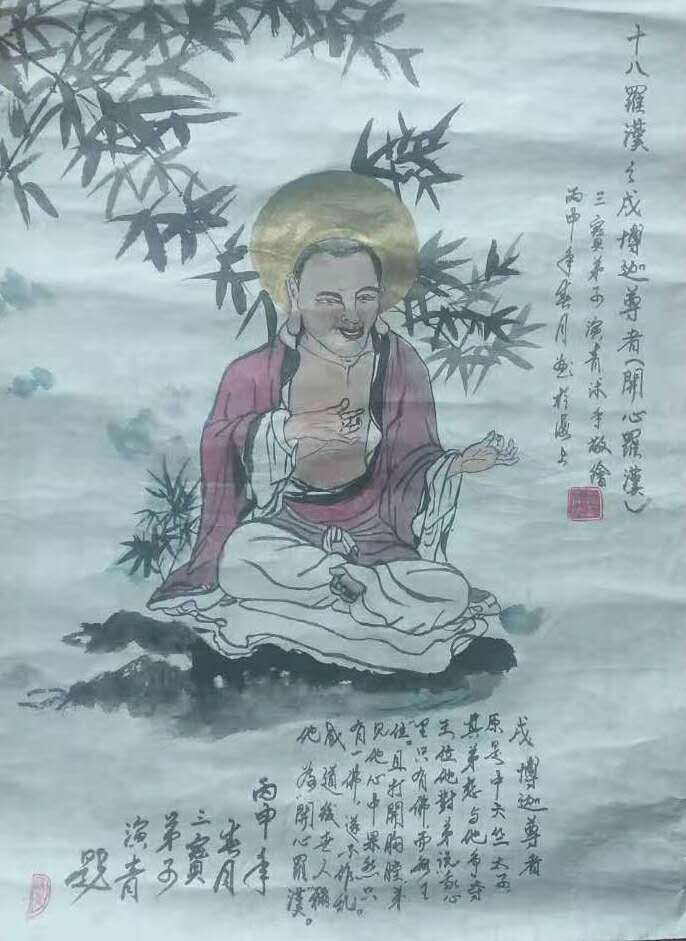 十八羅漢之戍博迦尊者(開心羅漢)
三寳弟子演青沐手敬繪
丙申年春月画於滬上
戍博迦尊者
原是中天竺太子
其弟想与他争夺
王位他對弟说我心
里只有佛而無王
位。且打開胸膛弟
见他心中果然只
有一佛,遂不作乱。
成道後世人稱
他為"開心羅漢"。
丙申年
春月
三寳
弟子
演青
题